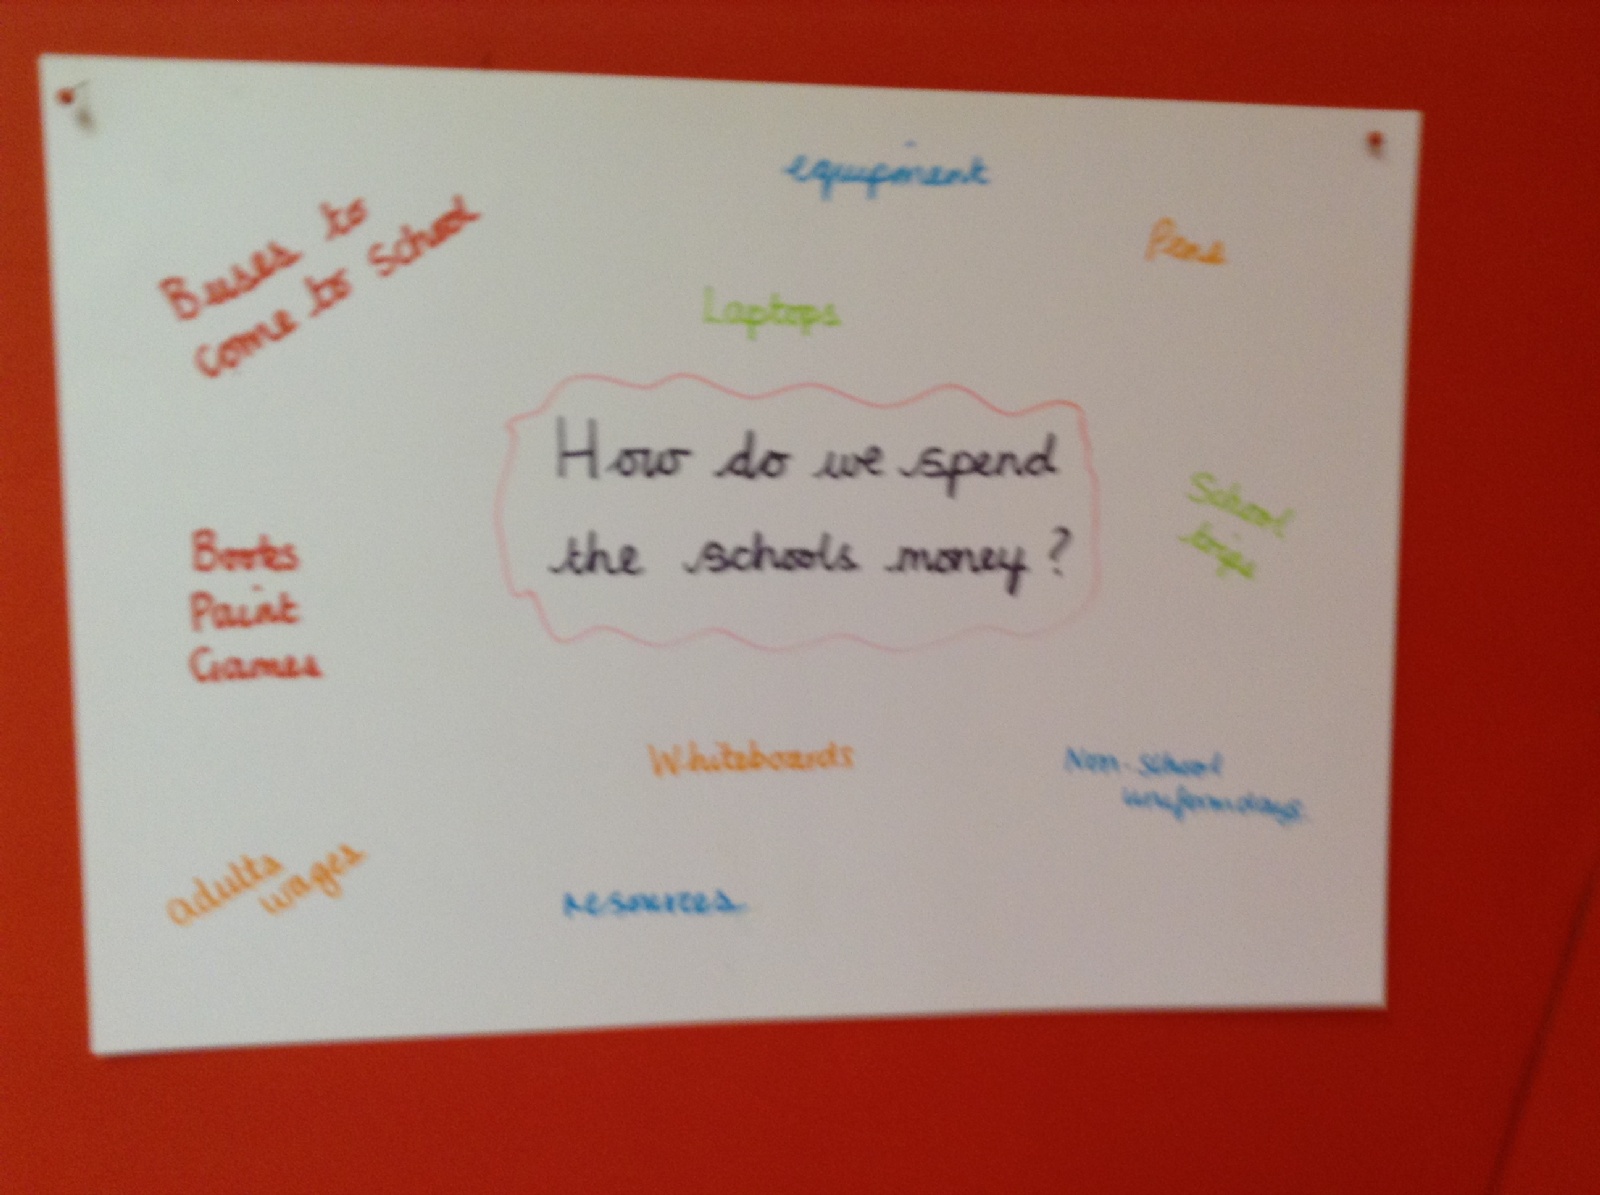 equipment
Pens
Buses to
come to School
Laptops
How do we spend
the schools money?
School
trips
Books
Paint
Games
Whiteboards
Non-school
uniform days
adults
wages
resources